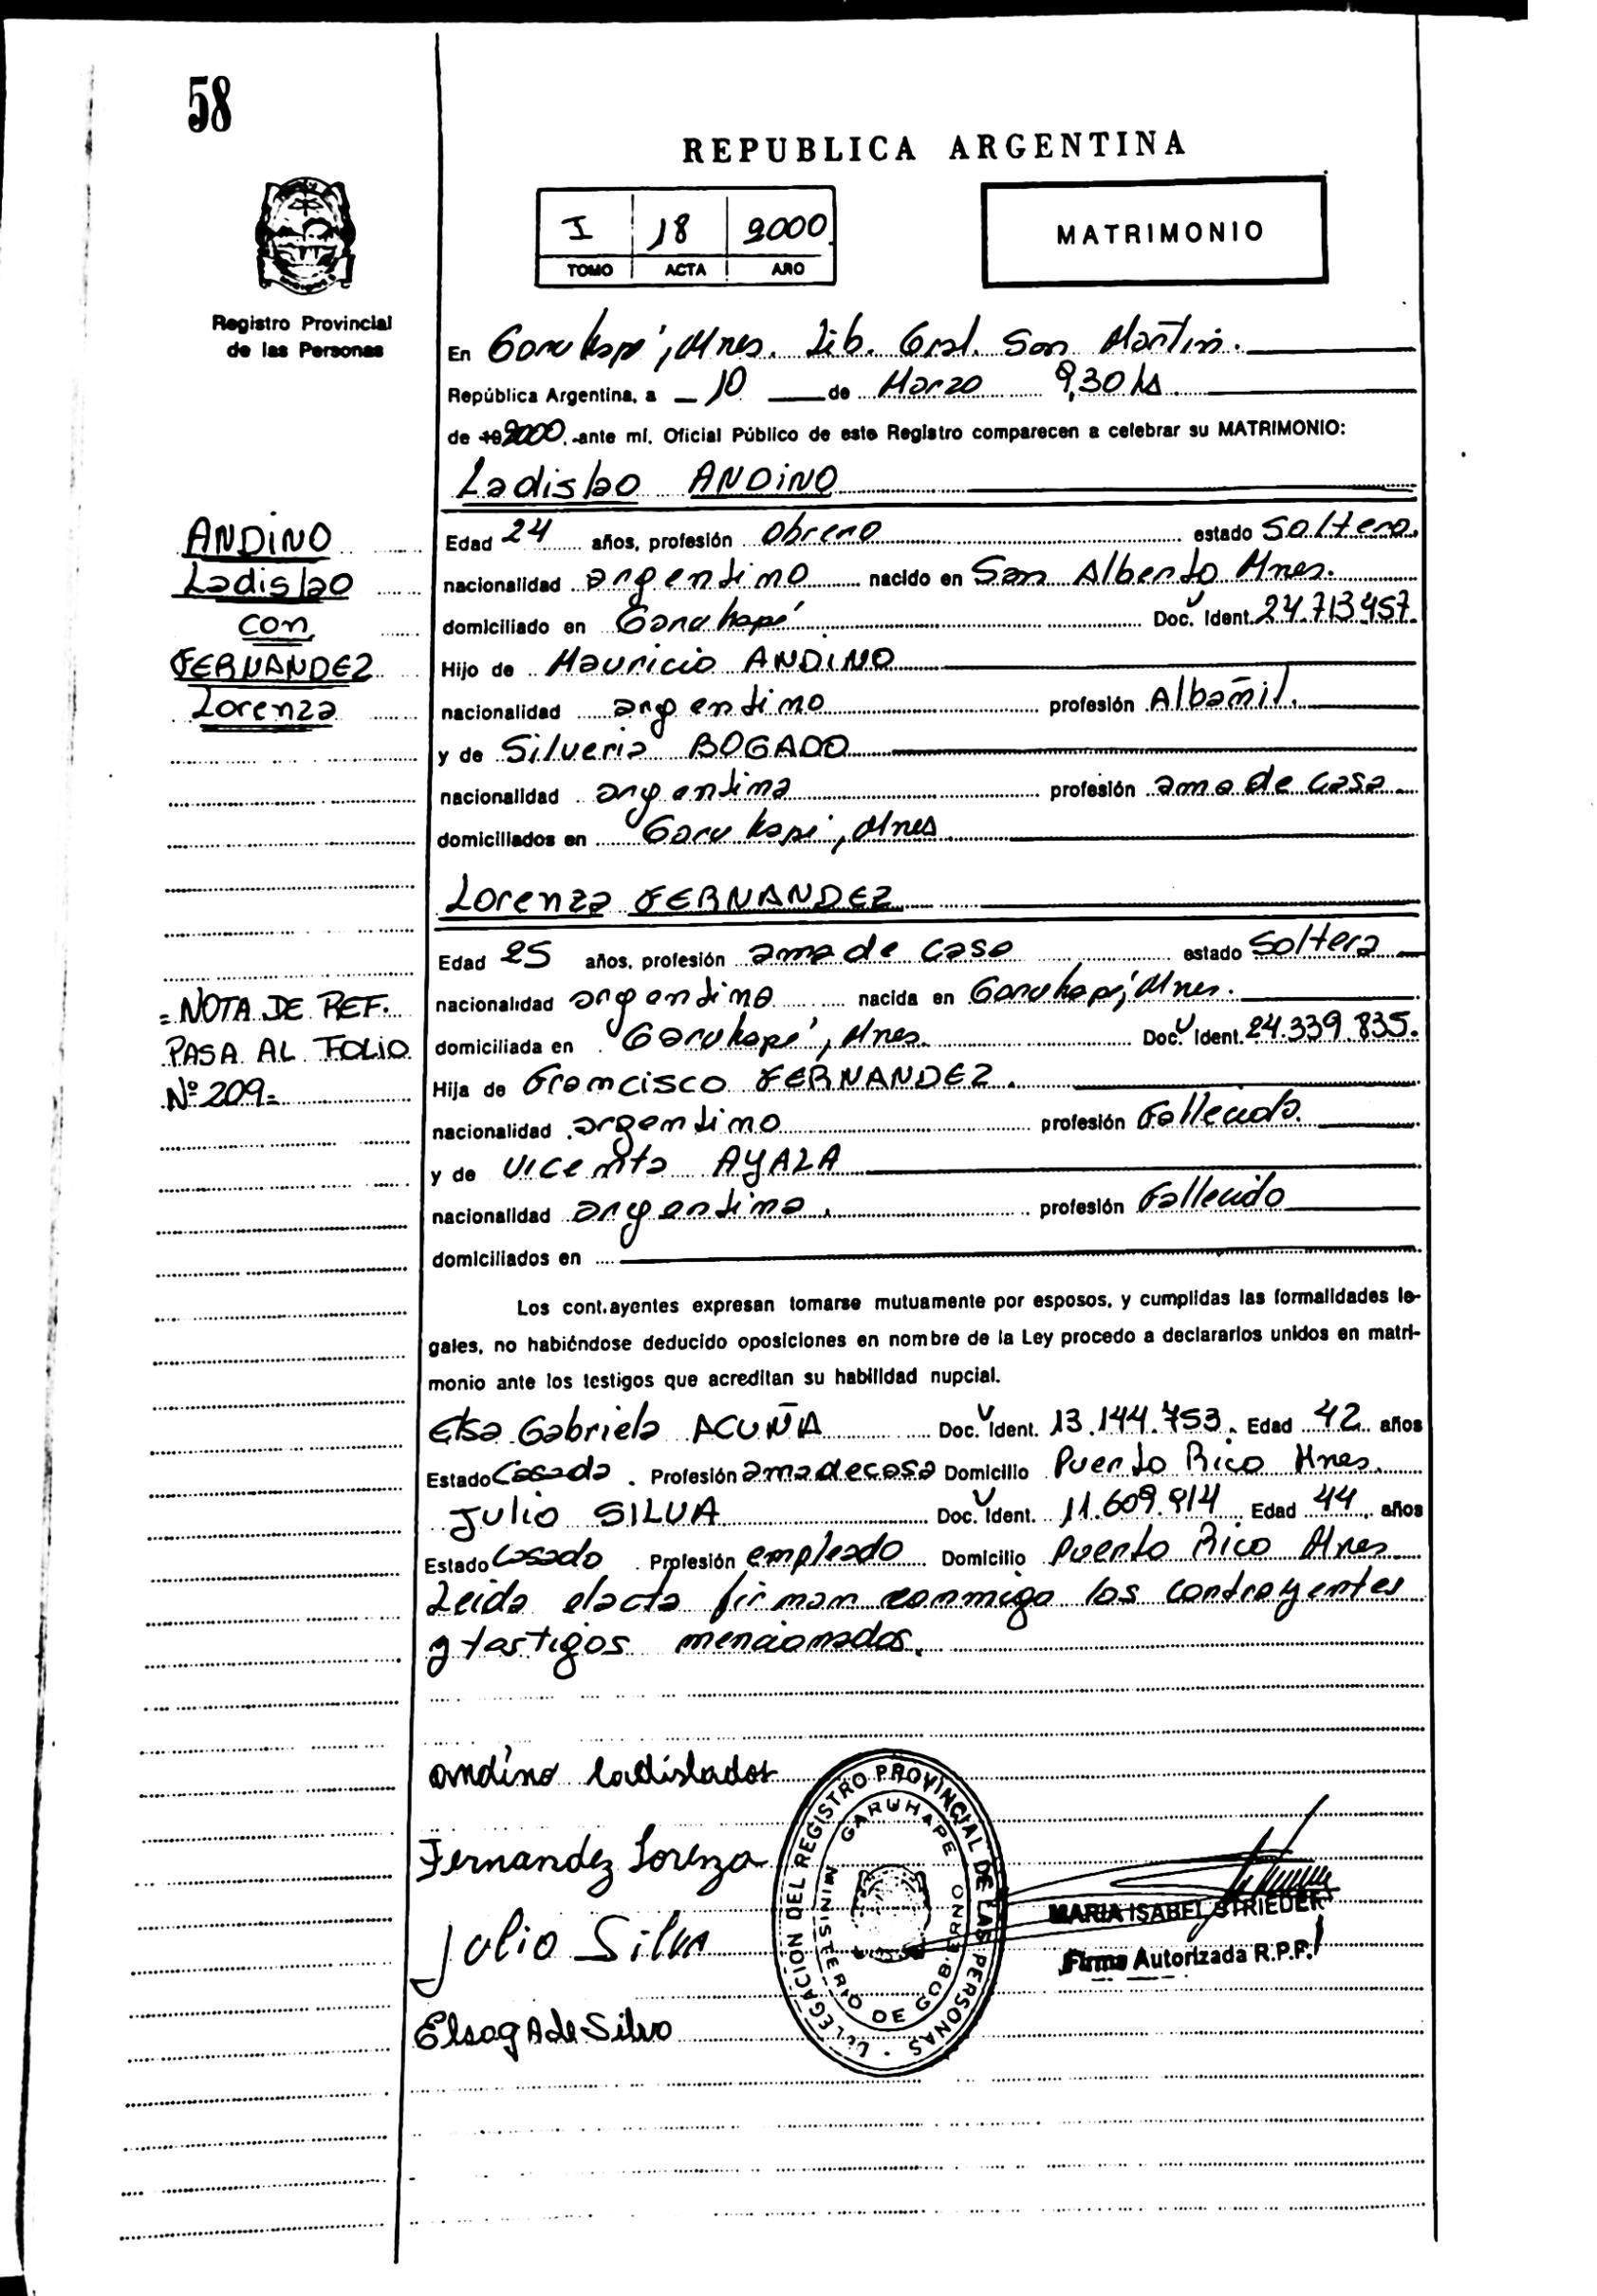 58
REPUBLICA ARGENTINA
I 18 2000
TOMO ACTA AÑO
MATRIMONIO
Registro Provincial
de las Personas
En Garuhapé, Mnes. Lib. Gral. San Martín.
República Argentina, a 10 de Marzo 9,30 hs
de 19 2000, ante mí, Oficial Público de este Registro comparecen a celebrar su MATRIMONIO:
Ladislao ANDINO
ANDINO
Ladislao
con
FERNANDEZ
Lorenza
Edad 24 años, profesión Obrero estado Soltero.
nacionalidad argentino nacido en San Alberto Mnes.
domiciliado en Garuhapé Doc. U Ident. 24.713.457.
Hijo de Mauricio ANDINO
nacionalidad argentino profesión Albañil.
y de Silveria BOGADO
nacionalidad argentina profesión ama de casa
domiciliados en Garuhapé, Mnes
Lorenza FERNANDEZ
Edad 25 años, profesión ama de casa estado Soltera
nacionalidad argentina nacida en Garuhapé, Mnes.
domiciliada en Garuhapé, Mnes. Doc. U Ident. 24.339.835.
= NOTA DE REF.
PASA AL FOLIO
Nº 209=
Hija de Francisco FERNANDEZ.
nacionalidad argentino profesión Fallecido.
y de Vicenta AYALA
nacionalidad argentina. profesión Fallecido
domiciliados en
Los cont.ayentes expresan tomarse mutuamente por esposos, y cumplidas las formalidades le-
gales, no habiéndose deducido oposiciones en nombre de la Ley procedo a declararlos unidos en matri-
monio ante los testigos que acreditan su habilidad nupcial.
Elsa Gabriela ACUÑA Doc. U Ident. 13.144.753. Edad 42 años
Estado Casada. Profesión ama de casa Domicilio Puerto Rico Mnes.
Julio SILVA Doc. U Ident. 11.609.914 Edad 44 años
Estado Casado. Profesión empleado Domicilio Puerto Rico Mnes
Leida el acta firman conmigo los contrayentes
y testigos mencionados.
andino ladislador
Fernandez Lorenza
Julio Silva
Elsa g A de Silva
DELEGACION DEL REGISTRO PROVINCIAL DE LAS PERSONAS
GARUHAPE
MINISTERIO DE GOBIERNO
MARIA ISABEL STRIEDER
Firma Autorizada R.P.P.